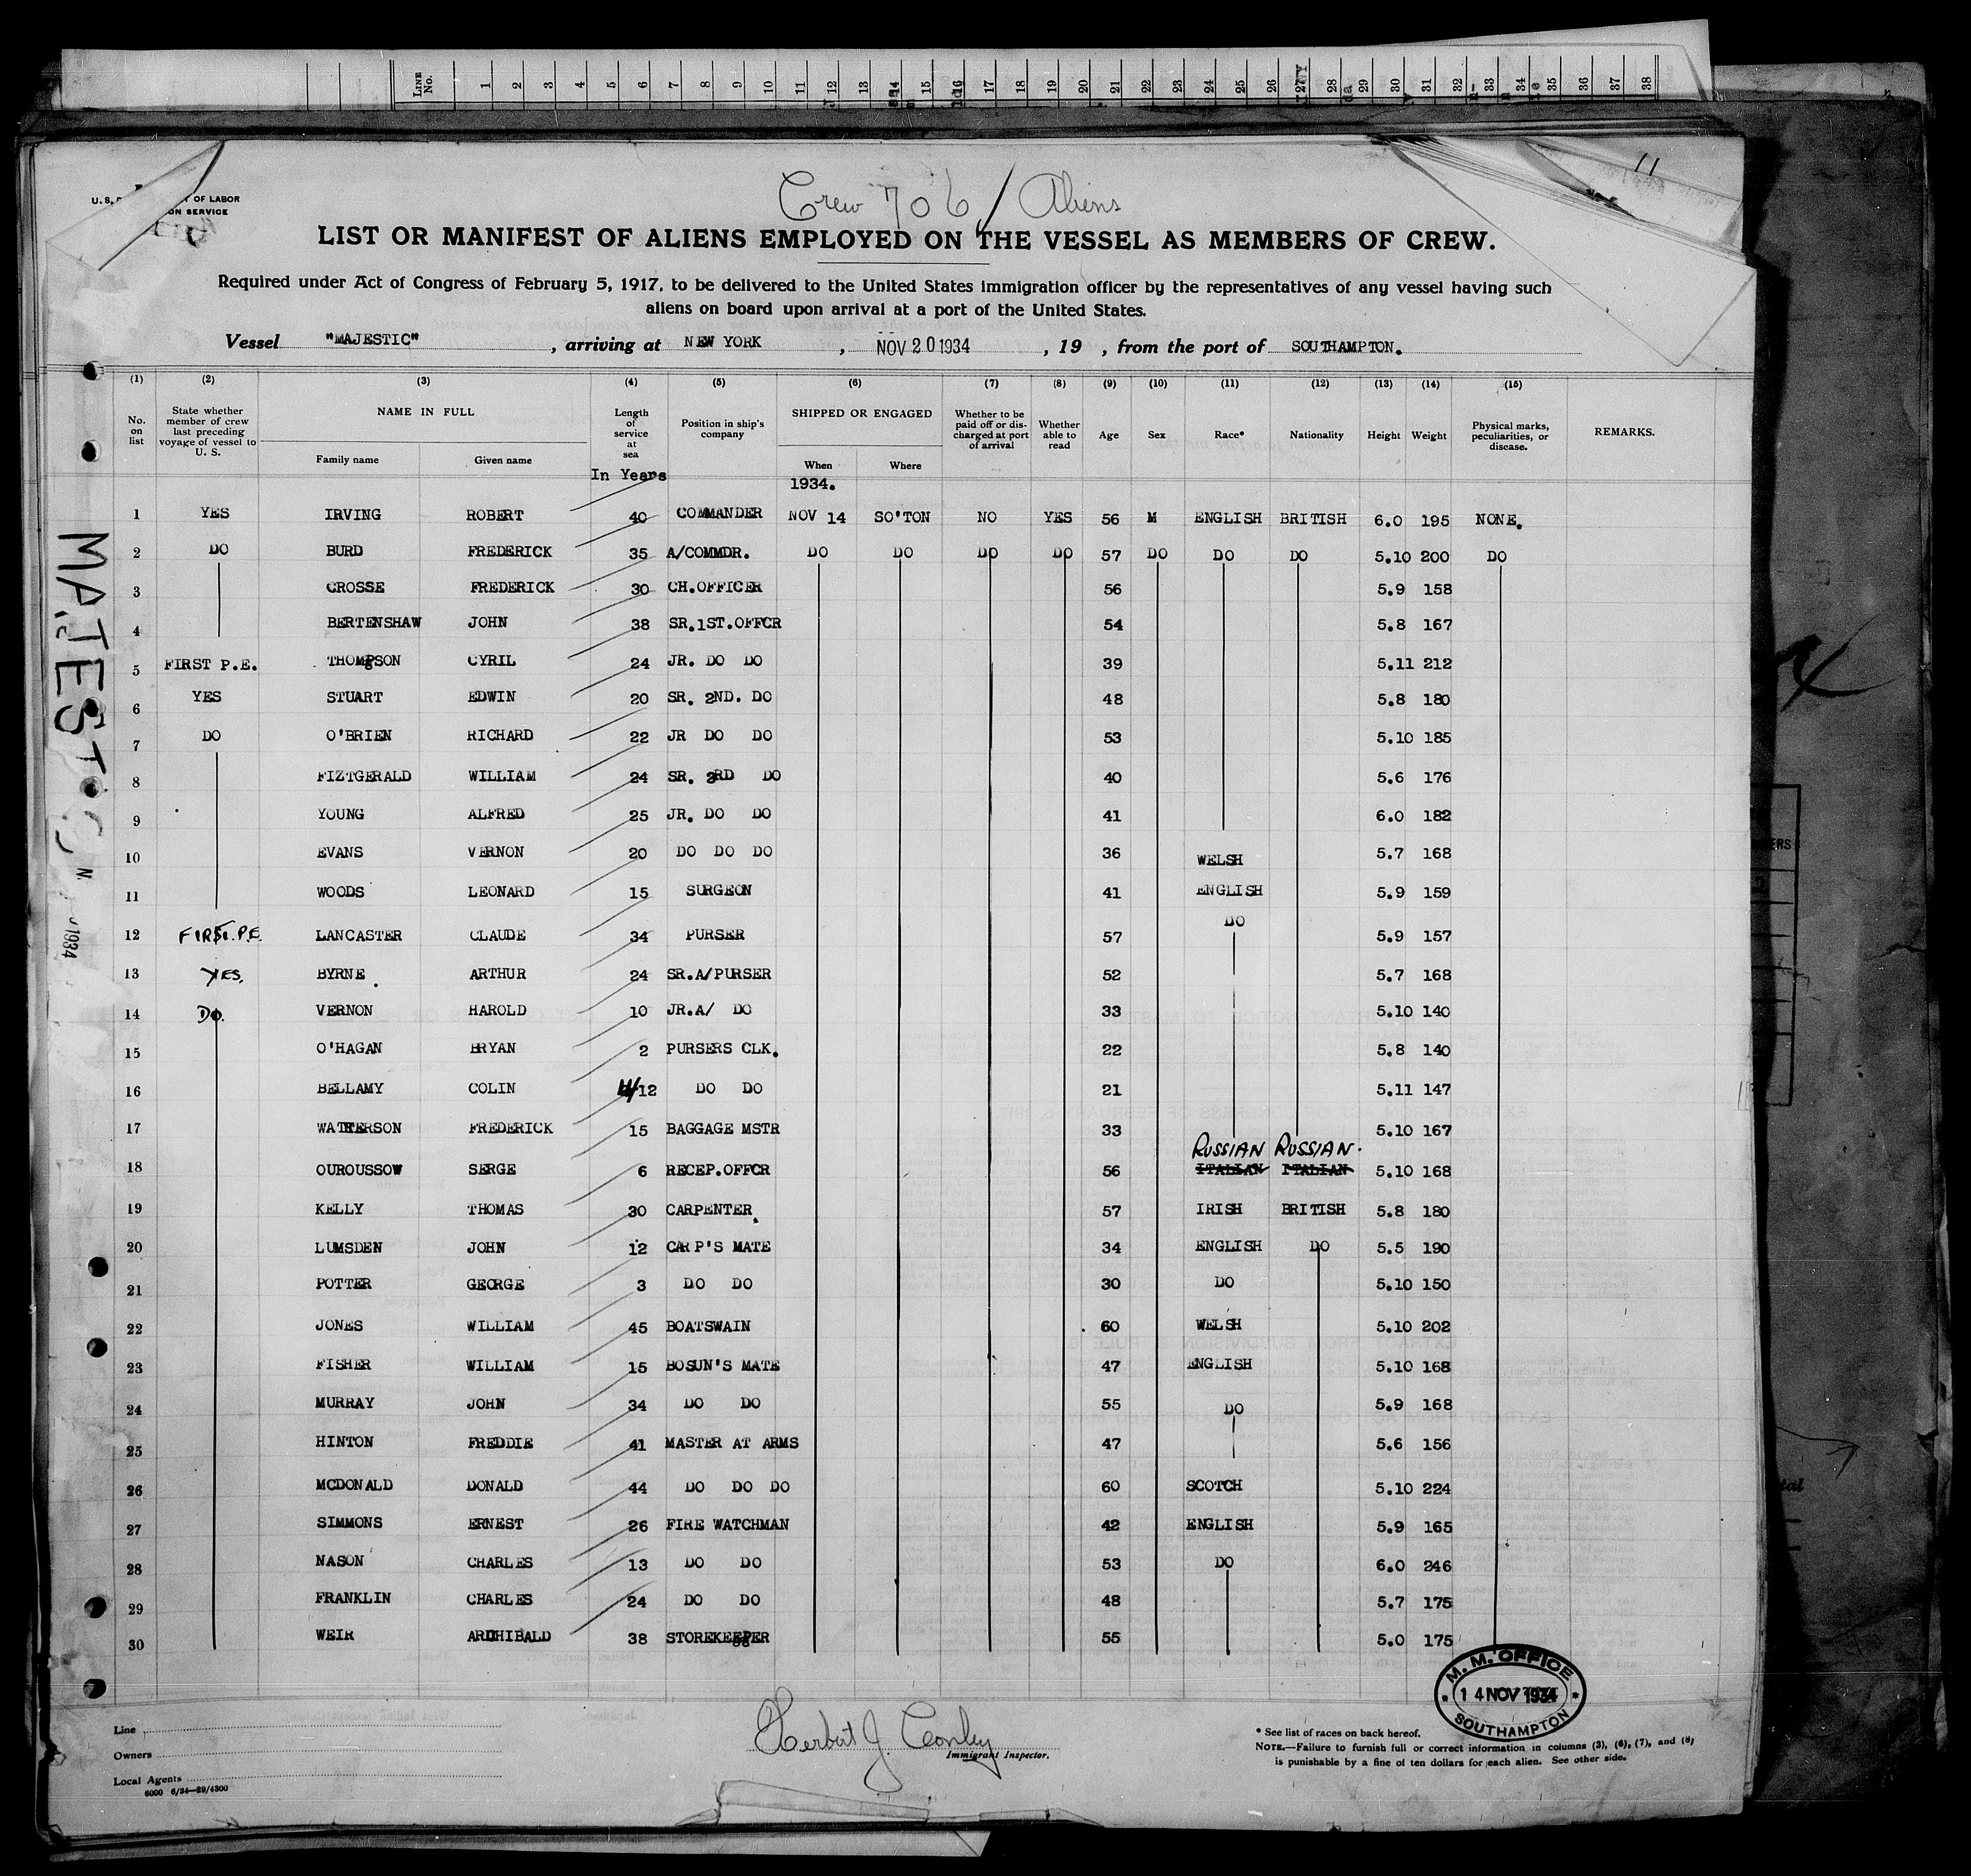 LINE No. 1 2 3 4 5 6 7 8 9 10 11 12 13 14 15 16 17 18 19 20 21 22 23 24 25 26 27 28 29 30 31 32 33 34 35 36 37 38
11
Crew 706 / Aliens
OF LABOR
ON SERVICE
LIST OR MANIFEST OF ALIENS EMPLOYED ON THE VESSEL AS MEMBERS OF CREW.
Required under Act of Congress of February 5, 1917, to be delivered to the United States immigration officer by the representatives of any vessel having such
aliens on board upon arrival at a port of the United States.
Vessel "MAJESTIC", arriving at NEW YORK, NOV 20 1934, 19 , from the port of SOUTHAMPTON.
(1) (2) (3) (4) (5) (6) (7) (8) (9) (10) (11) (12) (13) (14) (15)
No. on list State whether member of crew last preceding voyage of vessel to U. S. NAME IN FULL Family name Given name Length of service at sea In Years Position in ship's company SHIPPED OR ENGAGED When Where Whether to be paid off or discharged at port of arrival Whether able to read Age Sex Race* Nationality Height Weight Physical marks, peculiarities, or disease. REMARKS.
1934.
1 YES IRVING ROBERT 40 COMMANDER NOV 14 SO'TON NO YES 56 M ENGLISH BRITISH 6.0 195 NONE.
2 DO BURD FREDERICK 35 A/COMMDR. DO DO DO DO 57 DO DO DO 5.10 200 DO
3 CROSSE FREDERICK 30 CH.OFFICER 56 5.9 158
4 BERTENSHAW JOHN 38 SR.1ST.OFFCR 54 5.8 167
5 FIRST P.E. THOMPSON CYRIL 24 JR. DO DO 39 5.11 212
6 YES STUART EDWIN 20 SR. 2ND. DO 48 5.8 180
7 DO O'BRIEN RICHARD 22 JR DO DO 53 5.10 185
8 FIZTGERALD WILLIAM 24 SR. 3RD DO 40 5.6 176
9 YOUNG ALFRED 25 JR. DO DO 41 6.0 182
10 EVANS VERNON 20 DO DO DO 36 WELSH 5.7 168
11 WOODS LEONARD 15 SURGEON 41 ENGLISH 5.9 159
12 FIRST. P.E. LANCASTER CLAUDE 34 PURSER 57 DO 5.9 157
13 YES. BYRNE ARTHUR 24 SR.A/PURSER 52 5.7 168
14 DO. VERNON HAROLD 10 JR.A/ DO 33 5.10 140
15 O'HAGAN BRYAN 2 PURSERS CLK. 22 5.8 140
16 BELLAMY COLIN 11/12 DO DO 21 5.11 147
17 WATTERSON FREDERICK 15 BAGGAGE MSTR 33 5.10 167
RUSSIAN RUSSIAN.
18 OUROUSSOW SERGE 6 RECEP.OFFCR 56 ITALIAN ITALIAN 5.10 168
19 KELLY THOMAS 30 CARPENTER 57 IRISH BRITISH 5.8 180
20 LUMSDEN JOHN 12 CARP'S MATE 34 ENGLISH DO 5.5 190
21 POTTER GEORGE 3 DO DO 30 DO 5.10 150
22 JONES WILLIAM 45 BOATSWAIN 60 WELSH 5.10 202
23 FISHER WILLIAM 15 BOSUN'S MATE 47 ENGLISH 5.10 168
24 MURRAY JOHN 34 DO DO 55 DO 5.9 168
25 HINTON FREDDIE 41 MASTER AT ARMS 47 5.6 156
26 MCDONALD DONALD 44 DO DO DO 60 SCOTCH 5.10 224
27 SIMMONS ERNEST 26 FIRE WATCHMAN 42 ENGLISH 5.9 165
28 NASON CHARLES 13 DO DO 53 DO 6.0 246
29 FRANKLIN CHARLES 24 DO DO 48 5.7 175
30 WEIR ARCHIBALD 38 STOREKEEPER 55 5.0 175
MAJESTIC
1934
M. M. OFFICE
14 NOV 1934
SOUTHAMPTON
Line
Owners
Local Agents
6000 6/34—29/4300
Herbert J. Conley
Immigrant Inspector.
* See list of races on back hereof.
NOTE.—Failure to furnish full or correct information in columns (3), (6), (7), and (8)
is punishable by a fine of ten dollars for each alien. See other side.